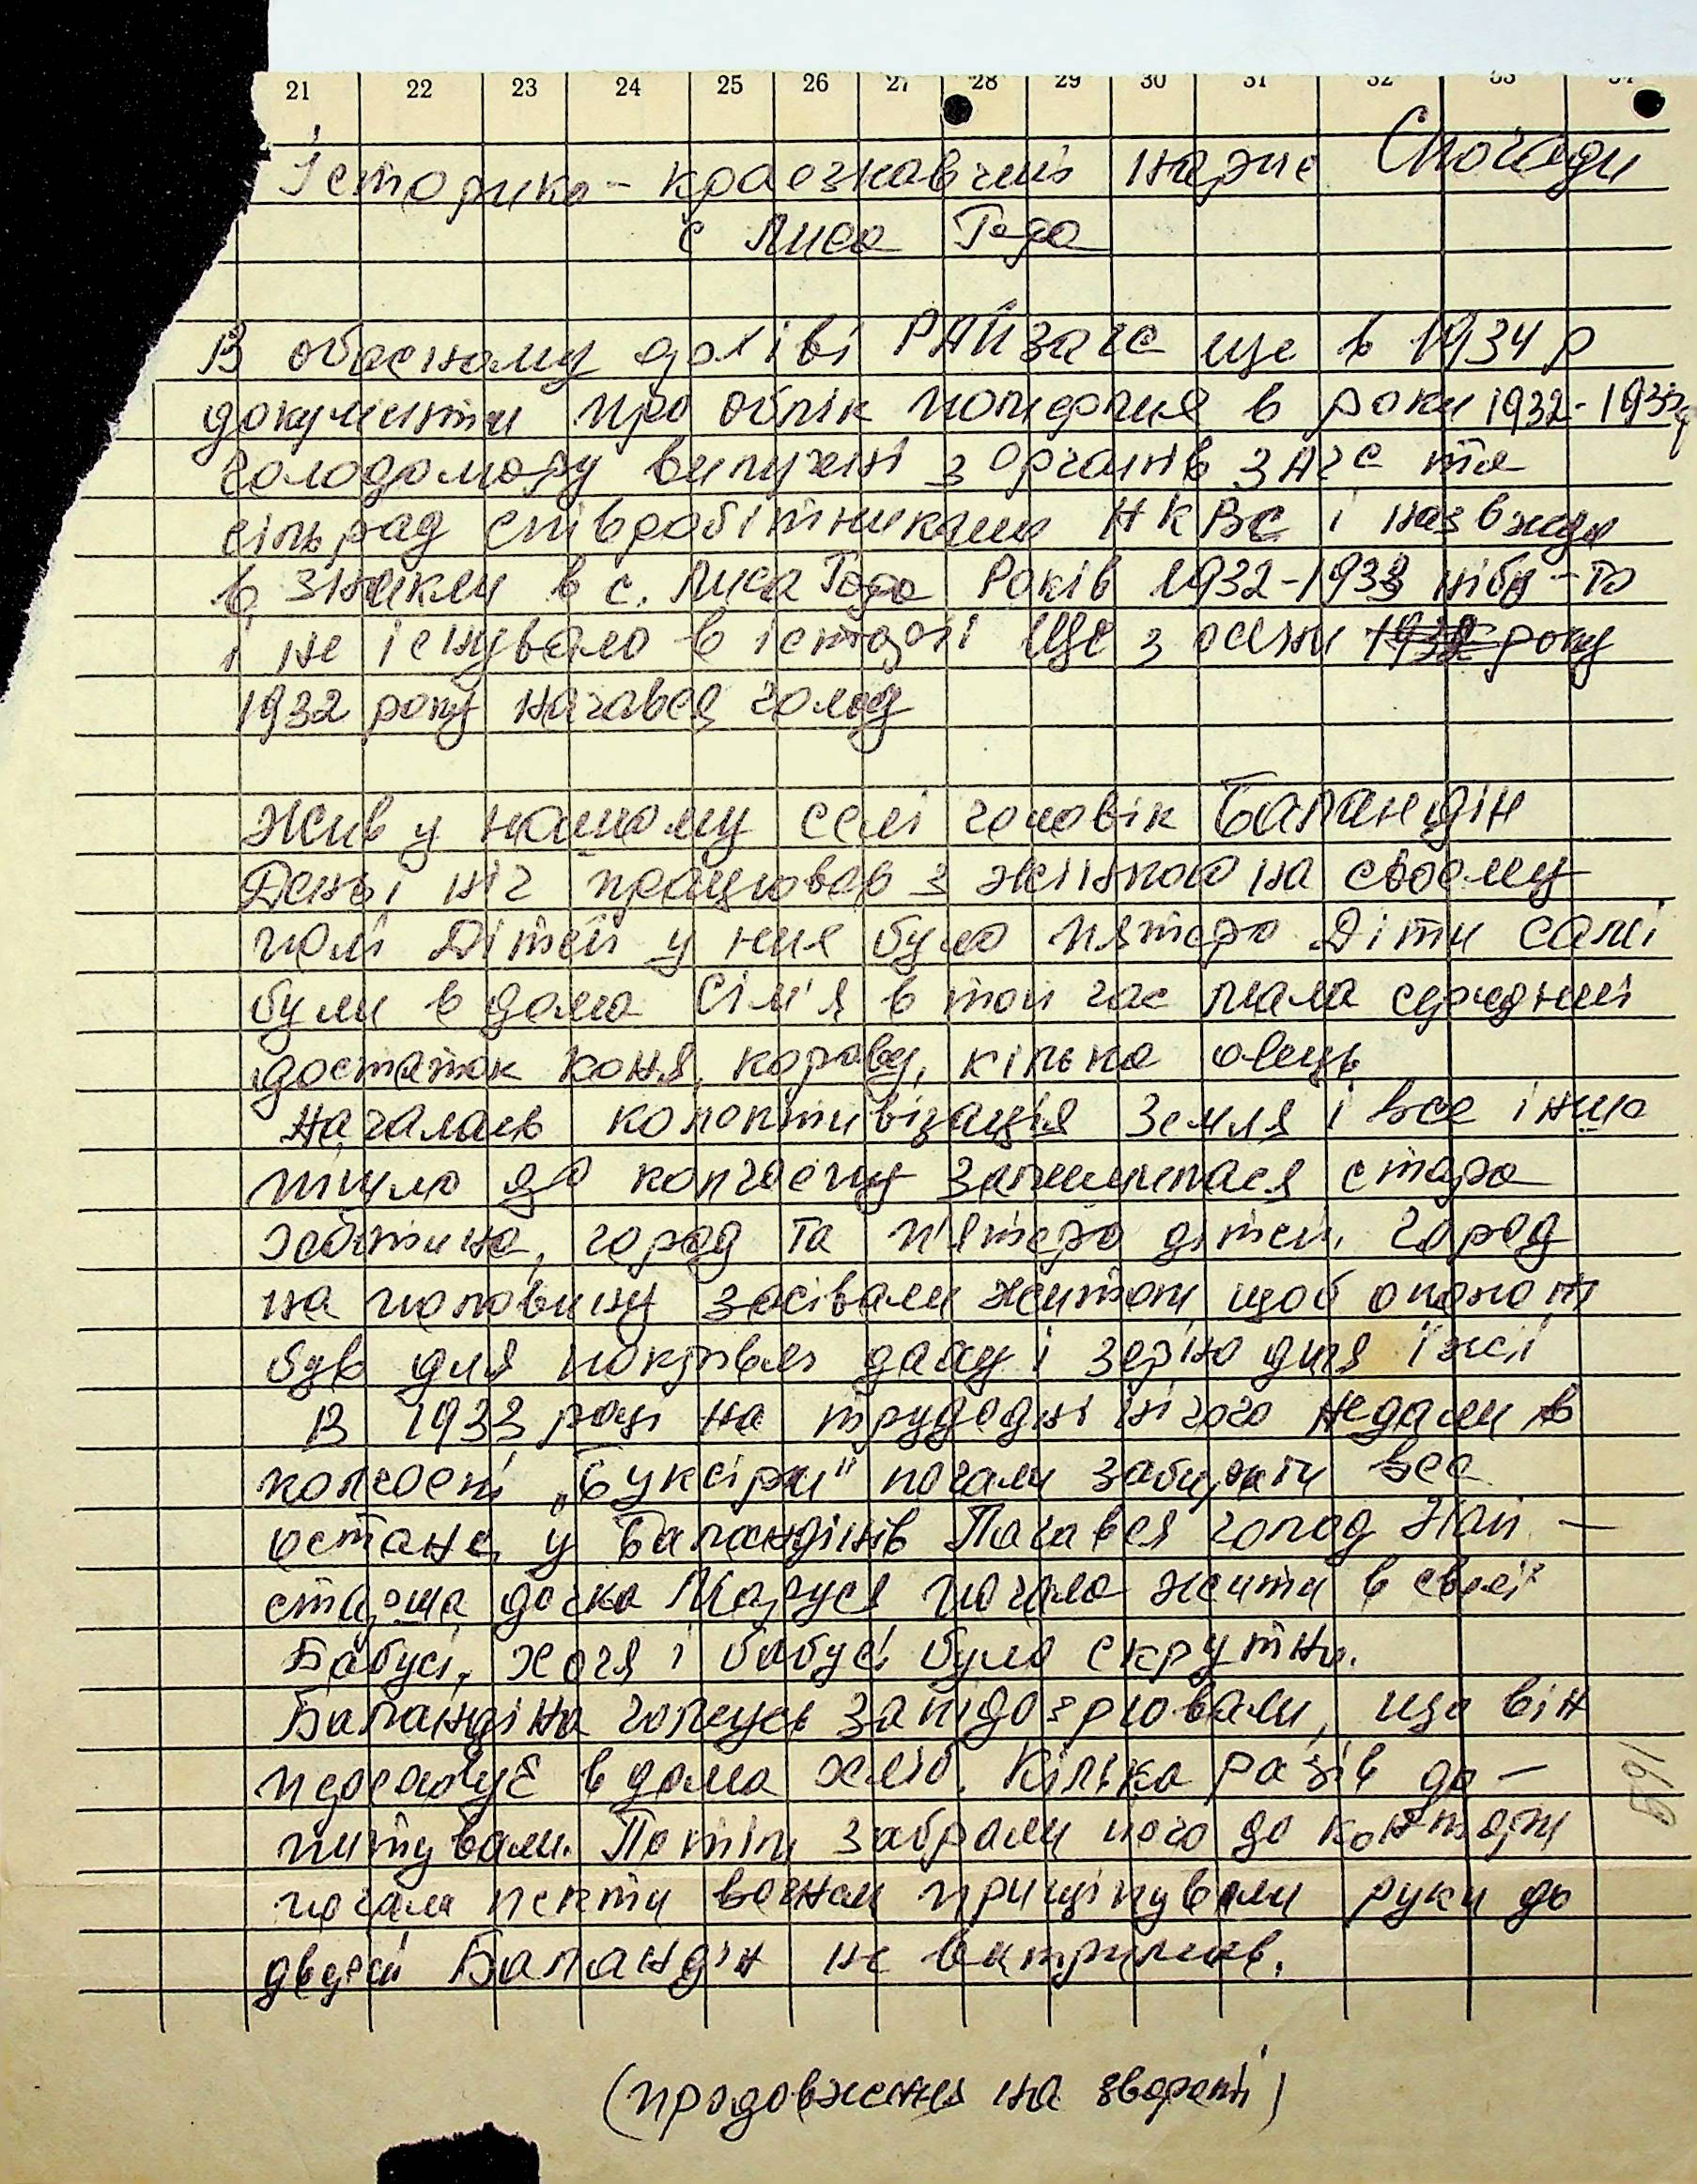 21 22 23 24 25 26 27 28 29 30 31 32 33 34
Історико-краєзнавчий нарис Спогади
с Лиса Гора
В обласному архіві РАЙЗАГС ще в 1934 р
документи про облік померлих в роки 1932-1933
голодомору вилучені з органів ЗАГС та
сільрад співробітниками НКВС і назавжди
зникли в с. Лиса Гора Років 1932-1933 ніби-то
і не існувало в історії Ще з осени 1932 року
1932 року начався голод
Жив у нашому селі чоловік Баландін
День і ніч працював з жінкою на своєму
полі Дітей у них було пятеро Діти самі
були вдома Сім'я в той час мала середний
достаток коня, корову, кілька овець
Началась колективізація Земля і все інше
пішло до колгоспу Залишилася стара
хатина, город та п'ятеро дітей. Город
на половину засівали житом, щоб околот
був для покрівлі даху і зерно для їжі
В 1933 році на трудодні нічого недали в
колгоспі „Буксіри" почали забирати все
останнє у Баландінів Почався голод Най-
старша дочка Маруся почала жити в своєї
Бабусі, хоча і бабусі було скрутно.
Баландіна чомусь запідозрювали, що він
переховує вдома хліб. Кілька разів до-
питували. Потім забрали його до контори
почали пекти вогнем прищіпували руки до
дверей Баландін не витримав.
(продовження на звороті)
169